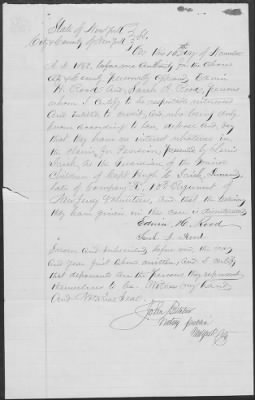 State of New York
City & County of New York } SS.
On this 16th day of
A.D. 1892, before me Authority for the above
City & County personally appeared Edwin
H. Rood and Sarah L. Rood, persons
whom I certify to be respectable witnesses
and entitled to credit, and who being duly
sworn according to law, depose and say
that they have no interest whatever in
the claim for Pension, presented by Louis
as the Guardian of the minor
Children of Capt Hugh C. deceased
late of Company 13th Regiment of
New Jersey Volunteers, and that the evidence
they have given in this case is
Edwin H. Rood
Sarah L. Rood
Sworn and subscribed before me, the day
and year first above written, and I certify
that deponents are the persons they represent
themselves to be. Witness my hand
and Notarial Seal.
John
Notary Public